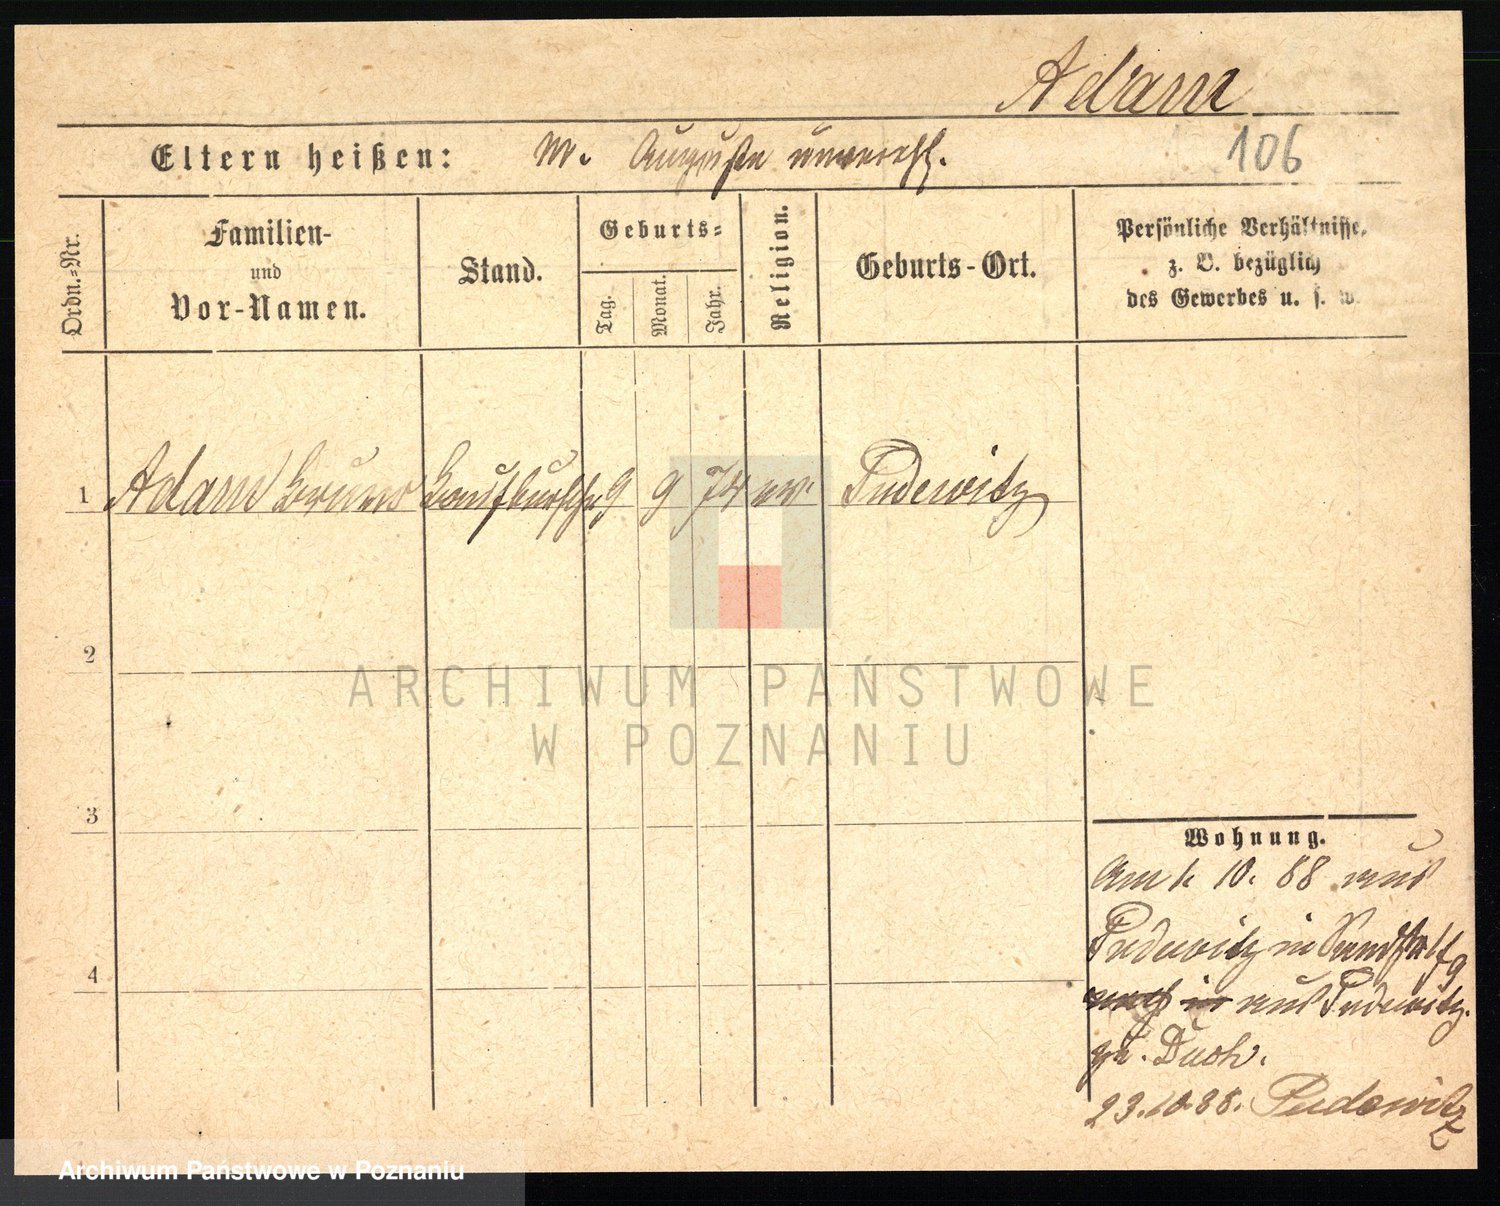 Adam
106
Eltern heißen: M. Auguste unverehl.
Ordn.-Nr.
Familien-
und
Vor-Namen.
Stand.
Geburts-
Tag.
Monat.
Jahr.
Religion.
Geburts-Ort.
Persönliche Verhältnisse,
z. B. bezüglich
des Gewerbes u. s. w.
1 Adam Bruno Laufbursche 9 9 74 ev. Pudewitz
2
3
4
ARCHIWUM PAŃSTWOWE
W POZNANIU
Wohnung.
Am 1. 10. 88 aus
Pudewitz in
aus Pudewitz.
23.10.88. Pudewitz
Archiwum Państwowe w Poznaniu